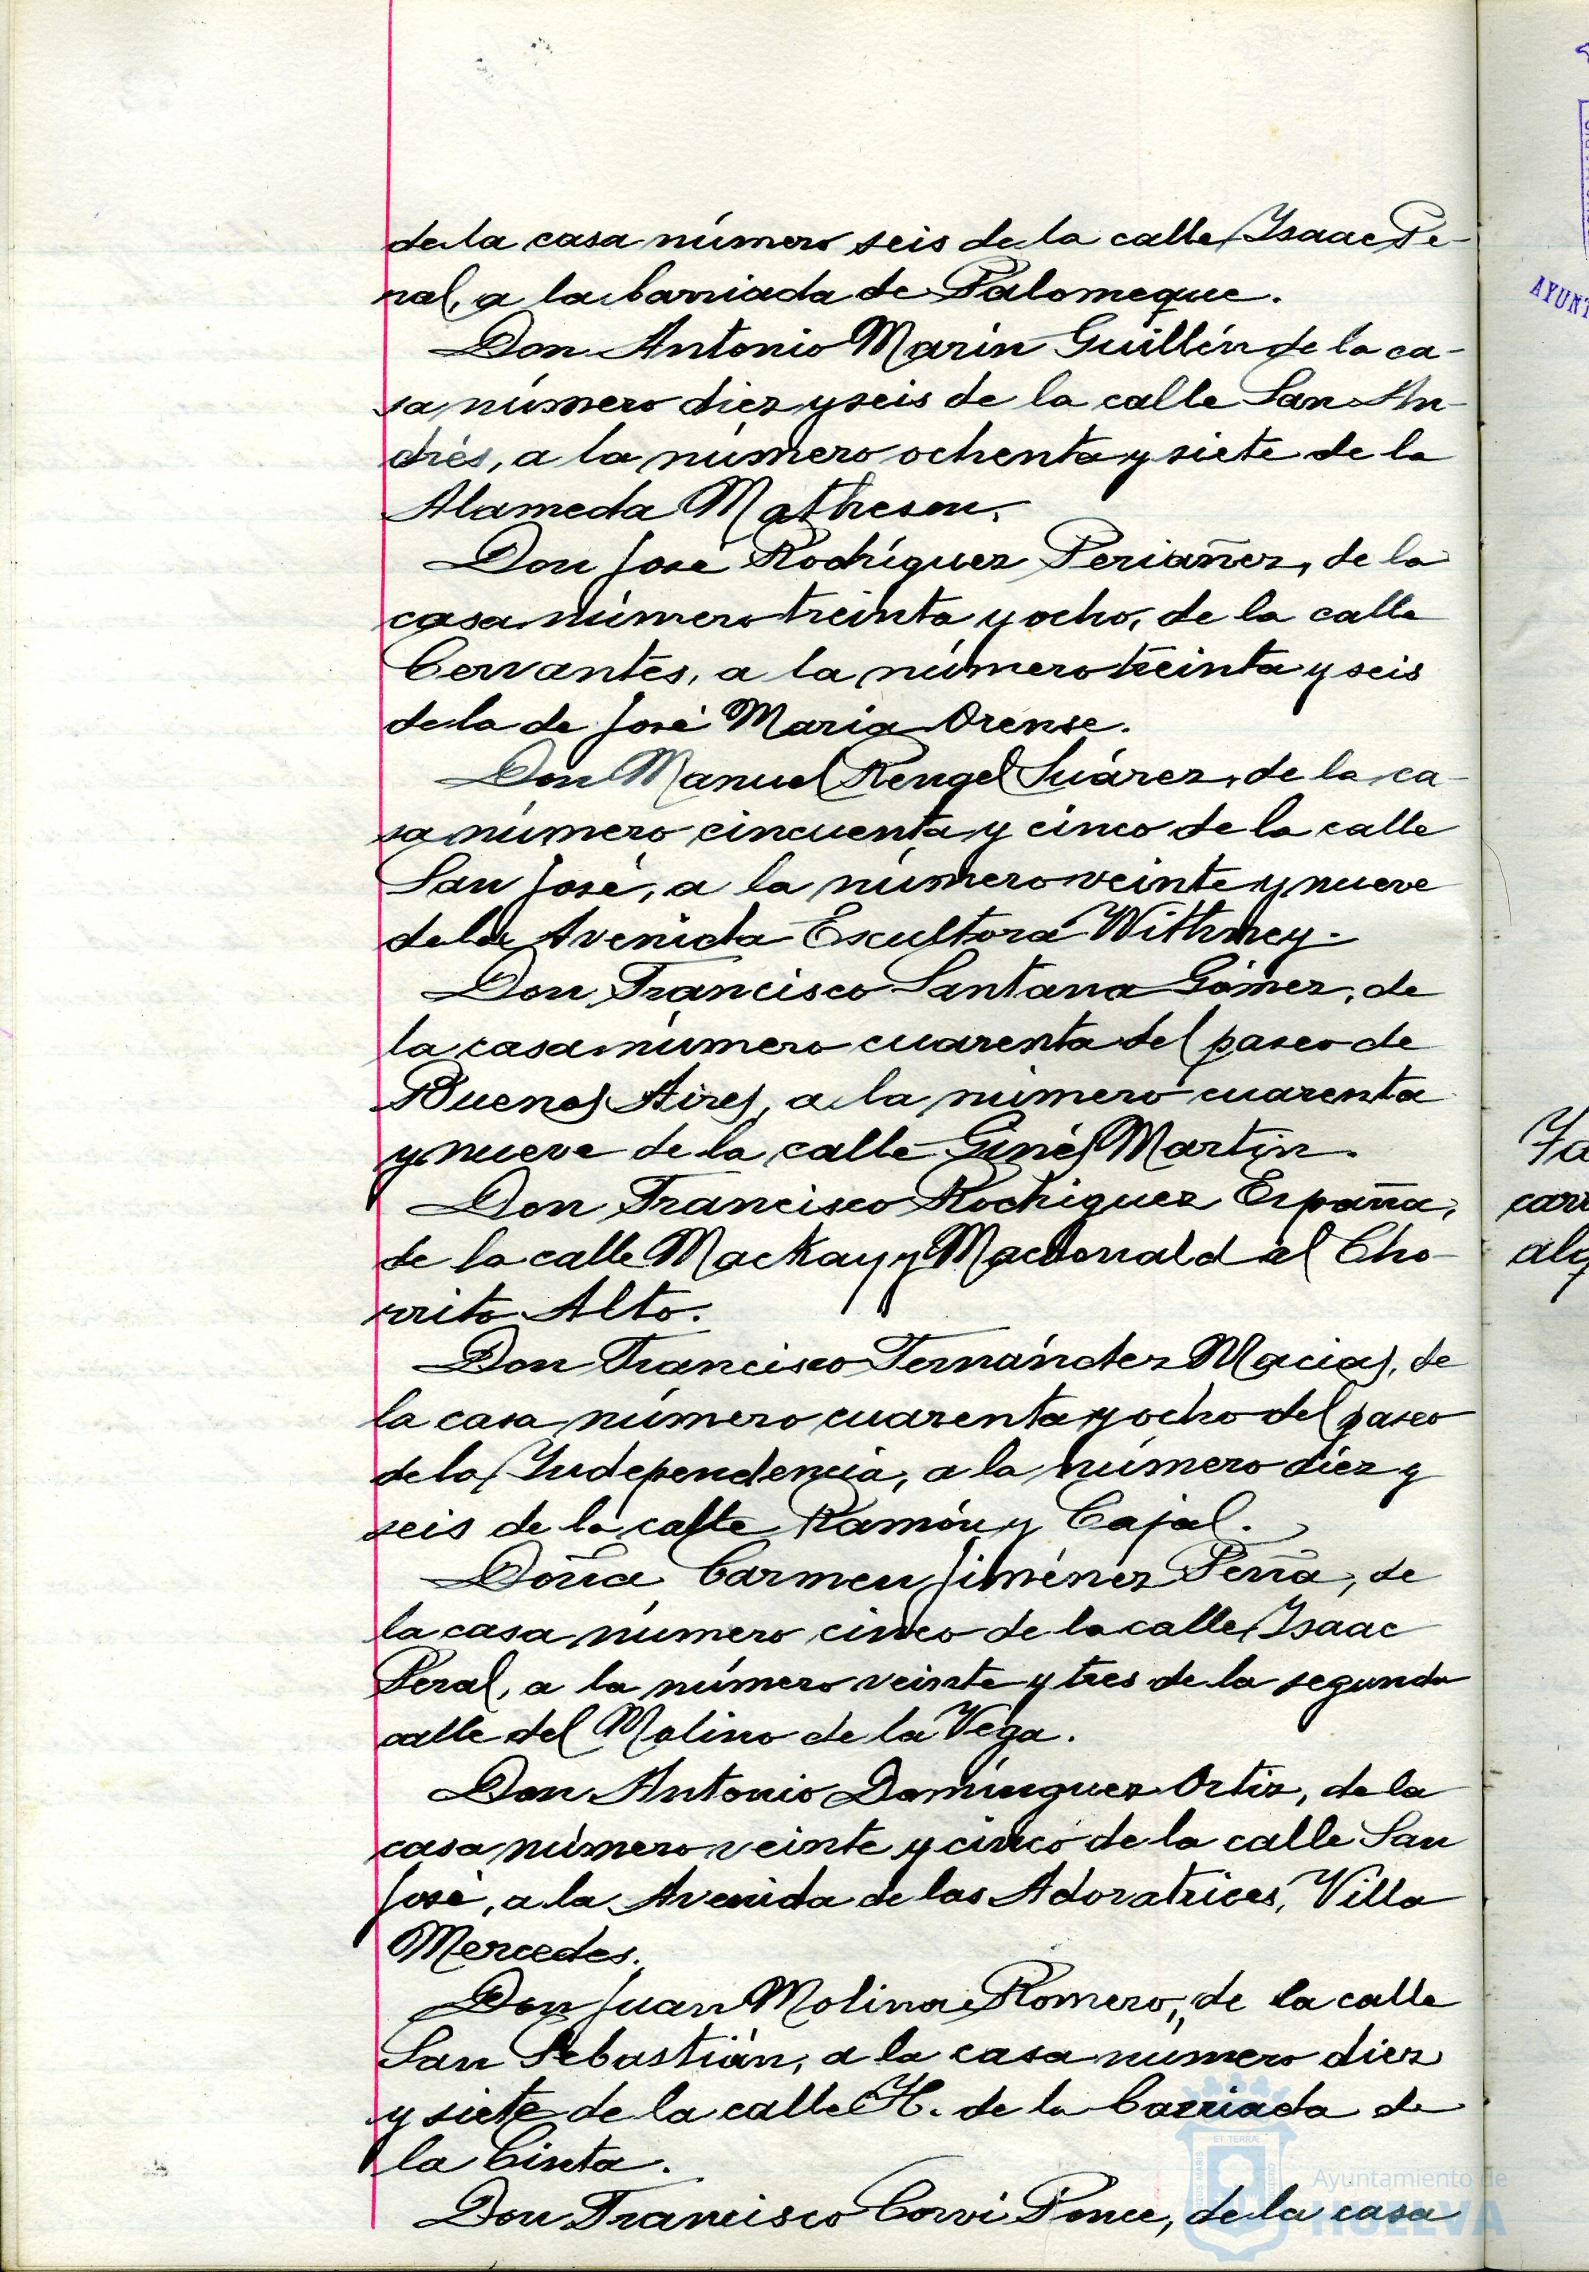 de la casa número seis de la calle Isaac Pe-
ral, a la barriada de Palomeque.
Don Antonio Marin Guillén de la ca-
sa número diez y seis de la calle San An-
drés, a la número ochenta y siete de la
Alameda Matheson.
Don José Rodríguez Periañez, de la
casa número treinta y ocho, de la calle
Cervantes, a la número treinta y seis
de la de José Maria Orense.
Don Manuel Rengel Suárez, de la ca-
sa número cincuenta y cinco de la calle
San José, a la número veinte y nueve
de la Avenida Escultora Withney.
Don Francisco Santana Gómez, de
la casa número cuarenta del paseo de
Buenos Aires, a la número cuarenta
y nueve de la calle Ginés Martín.
Don Francisco Rodriguez España,
de la calle Mackay y Macdonald al Cho-
rrito Alto.
Don Francisco Fernández Macias, de
la casa número cuarenta y ocho del paseo
de la Independencia, a la número diez y
seis de la calle Ramón y Cajal.
Doña Carmen Jiménez Peña, de
la casa número cinco de la calle Isaac
Peral, a la número veinte y tres de la segunda
calle del Molino de la Vega.
Don Antonio Domínguez Ortiz, de la
casa número veinte y cinco de la calle San
José, a la Avenida de las Adoratrices, Villa
Mercedes.
Don Juan Molina Romero, de la calle
San Sebastián, a la casa número diez
y siete de la calle H. de la barriada de
la Cinta.
Don Francisco Corvi Ponce, de la casa
AYUNT
carr
Ayuntamiento de
HUELVA